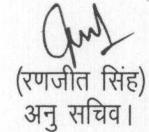 (रणजीत सिंह)
अनु सचिव।